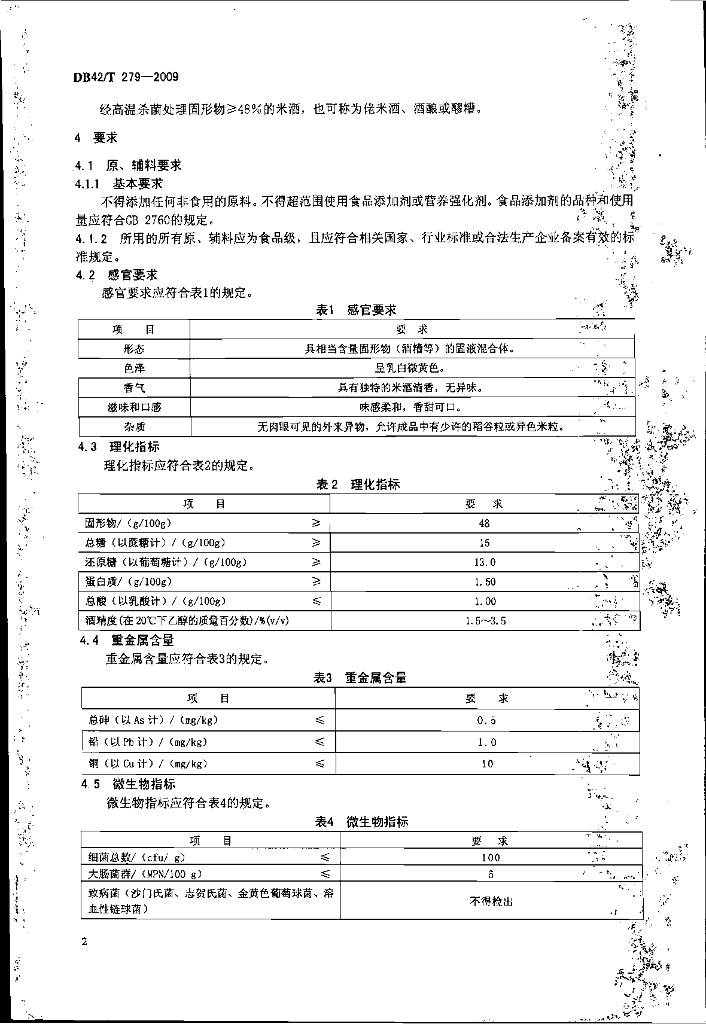 DB42/T 279—2009
经高温杀菌处理固形物≥48%的米酒，也可称为佬米酒、酒酿或醪糟。
4 要求
4.1 原、辅料要求
4.1.1 基本要求
不得添加任何非食用的原料。不得超范围使用食品添加剂或营养强化剂。食品添加剂的品种和使用
量应符合GB 2760的规定。
4.1.2 所用的所有原、辅料应为食品级，且应符合相关国家、行业标准或合法生产企业备案有效的标
准规定。
4.2 感官要求
感官要求应符合表1的规定。
表1 感官要求
项 目 要 求
形态 具相当含量固形物（酒糟等）的固液混合体。
色泽 呈乳白微黄色。
香气 具有独特的米酒清香，无异味。
滋味和口感 味感柔和，香甜可口。
杂质 无肉眼可见的外来异物，允许成品中有少许的稻谷粒或异色米粒。
4.3 理化指标
理化指标应符合表2的规定。
表 2 理化指标
项 目 要 求
固形物/（g/100g） ≥ 48
总糖（以蔗糖计）/（g/100g） ≥ 15
还原糖（以葡萄糖计）/（g/100g） ≥ 13.0
蛋白质/（g/100g） ≥ 1.50
总酸（以乳酸计）/（g/100g） ≤ 1.00
酒精度(在20℃下乙醇的质量百分数)/%(v/v) 1.5～3.5
4.4 重金属含量
重金属含量应符合表3的规定。
表3 重金属含量
项 目 要 求
总砷（以As计）/（mg/kg） ≤ 0.5
铅（以Pb计）/（mg/kg） ≤ 1.0
铜（以Cu计）/（mg/kg） ≤ 10
4.5 微生物指标
微生物指标应符合表4的规定。
表4 微生物指标
项 目 要 求
细菌总数/（cfu/ g） ≤ 100
大肠菌群/（MPN/100 g） ≤ 6
致病菌（沙门氏菌、志贺氏菌、金黄色葡萄球菌、溶 不得检出
血性链球菌）
2